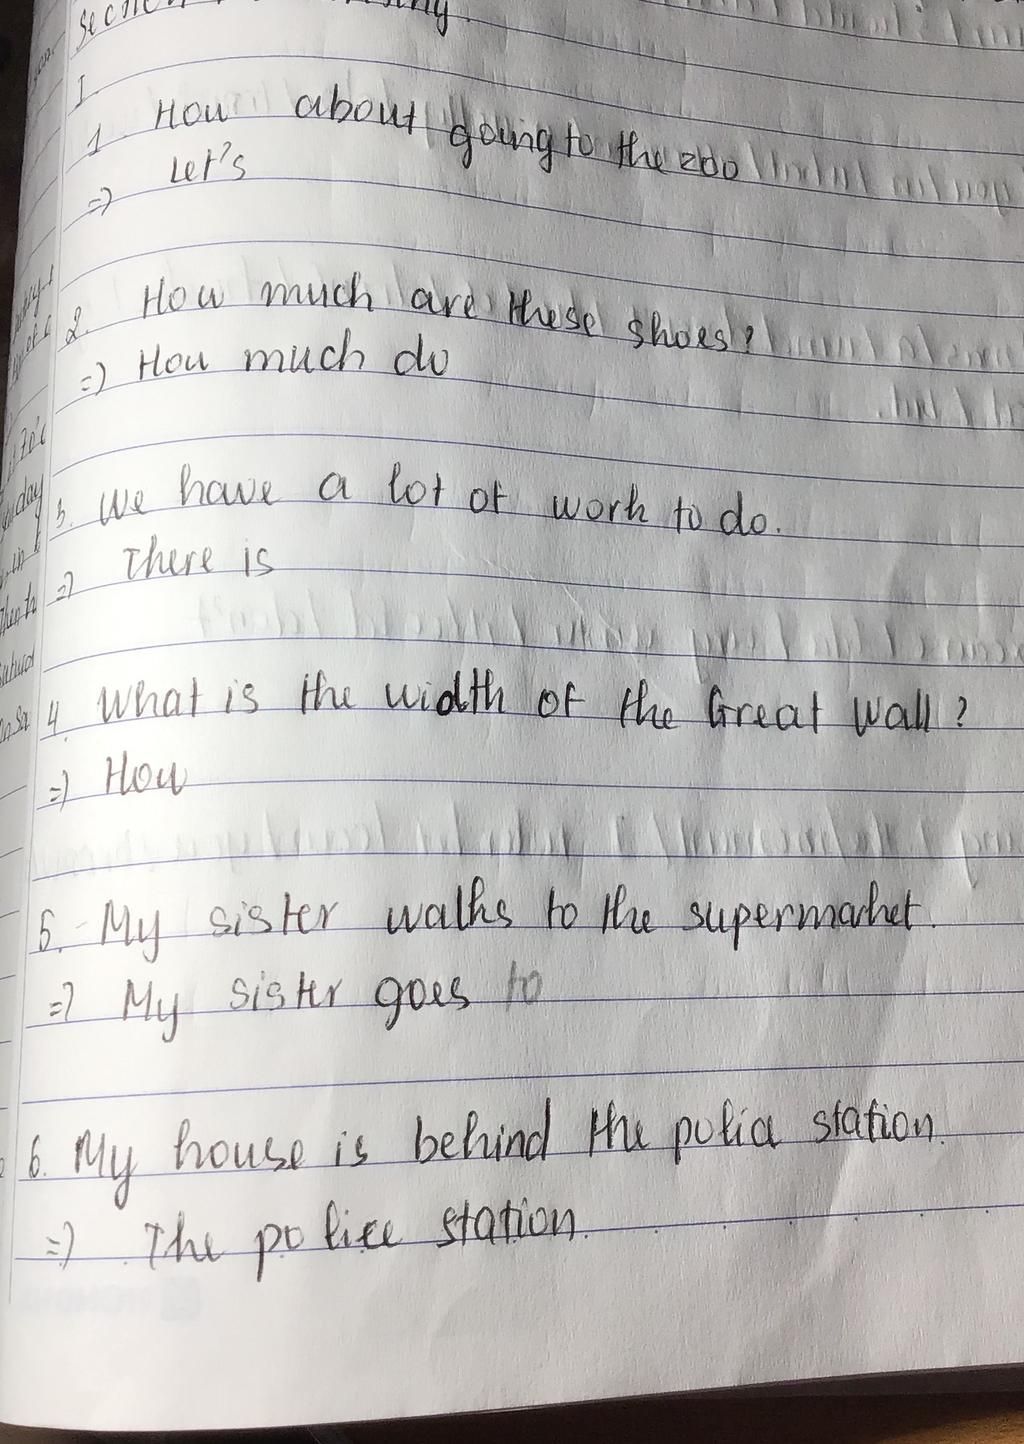 I.
1. How about going to the zoo
=) Let's
2. How much are these shoes?
=) How much do
3. We have a lot of work to do.
=) There is
4. What is the width of the Great Wall?
=) How
5. My sister walks to the supermarket.
=) My sister goes to
6. My house is behind the police station.
=) The police station.....